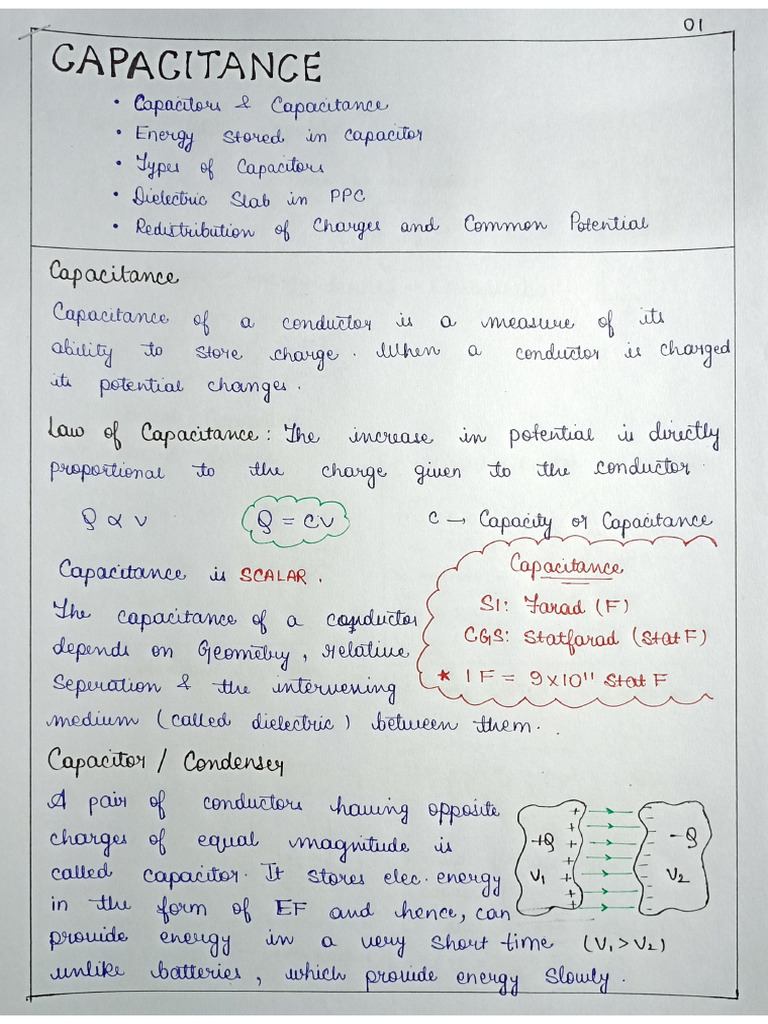 01
CAPACITANCE
• Capacitors & Capacitance
• Energy Stored in Capacitor
• Types of Capacitors
• Dielectric Slab in PPC
• Redistribution of Charges and Common Potential
Capacitance
Capacitance of a conductor is a measure of its
ability to store charge. When a conductor is charged
its potential changes.
Law of Capacitance: The increase in potential is directly
proportional to the charge given to the conductor.
Q ∝ V
Q = CV
C → Capacity or Capacitance
Capacitance is SCALAR.
The capacitance of a conductor
depends on Geometry, relative
Seperation & the intervening
medium (called dielectric) between them.
Capacitance
SI: Farad (F)
CGS: Statfarad (Stat F)
* 1 F = 9 x 10¹¹ Stat F
Capacitor / Condenser
A pair of conductors having opposite
charges of equal magnitude is
called capacitor. It stores elec. energy
in the form of EF and hence, can
provide energy in a very short time
unlike batteries, which provide energy slowly.
+Q
V₁
-Q
V₂
(V₁ > V₂)